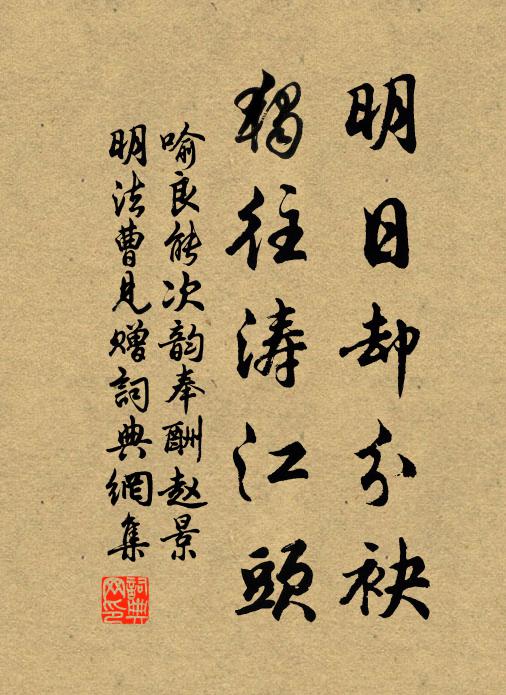 明日却分袂
獨往涛江頭
喻良能次韵奉酬赵景
明法曹見赠詞典網集
詞典网印